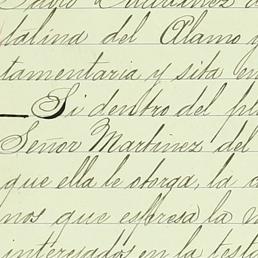 talina del Alamo y
tamentaria y sita en
Si dentro del pl
Señor Martinez del
que ella le otorga, la c
nos que espresa la
interesados en la testa